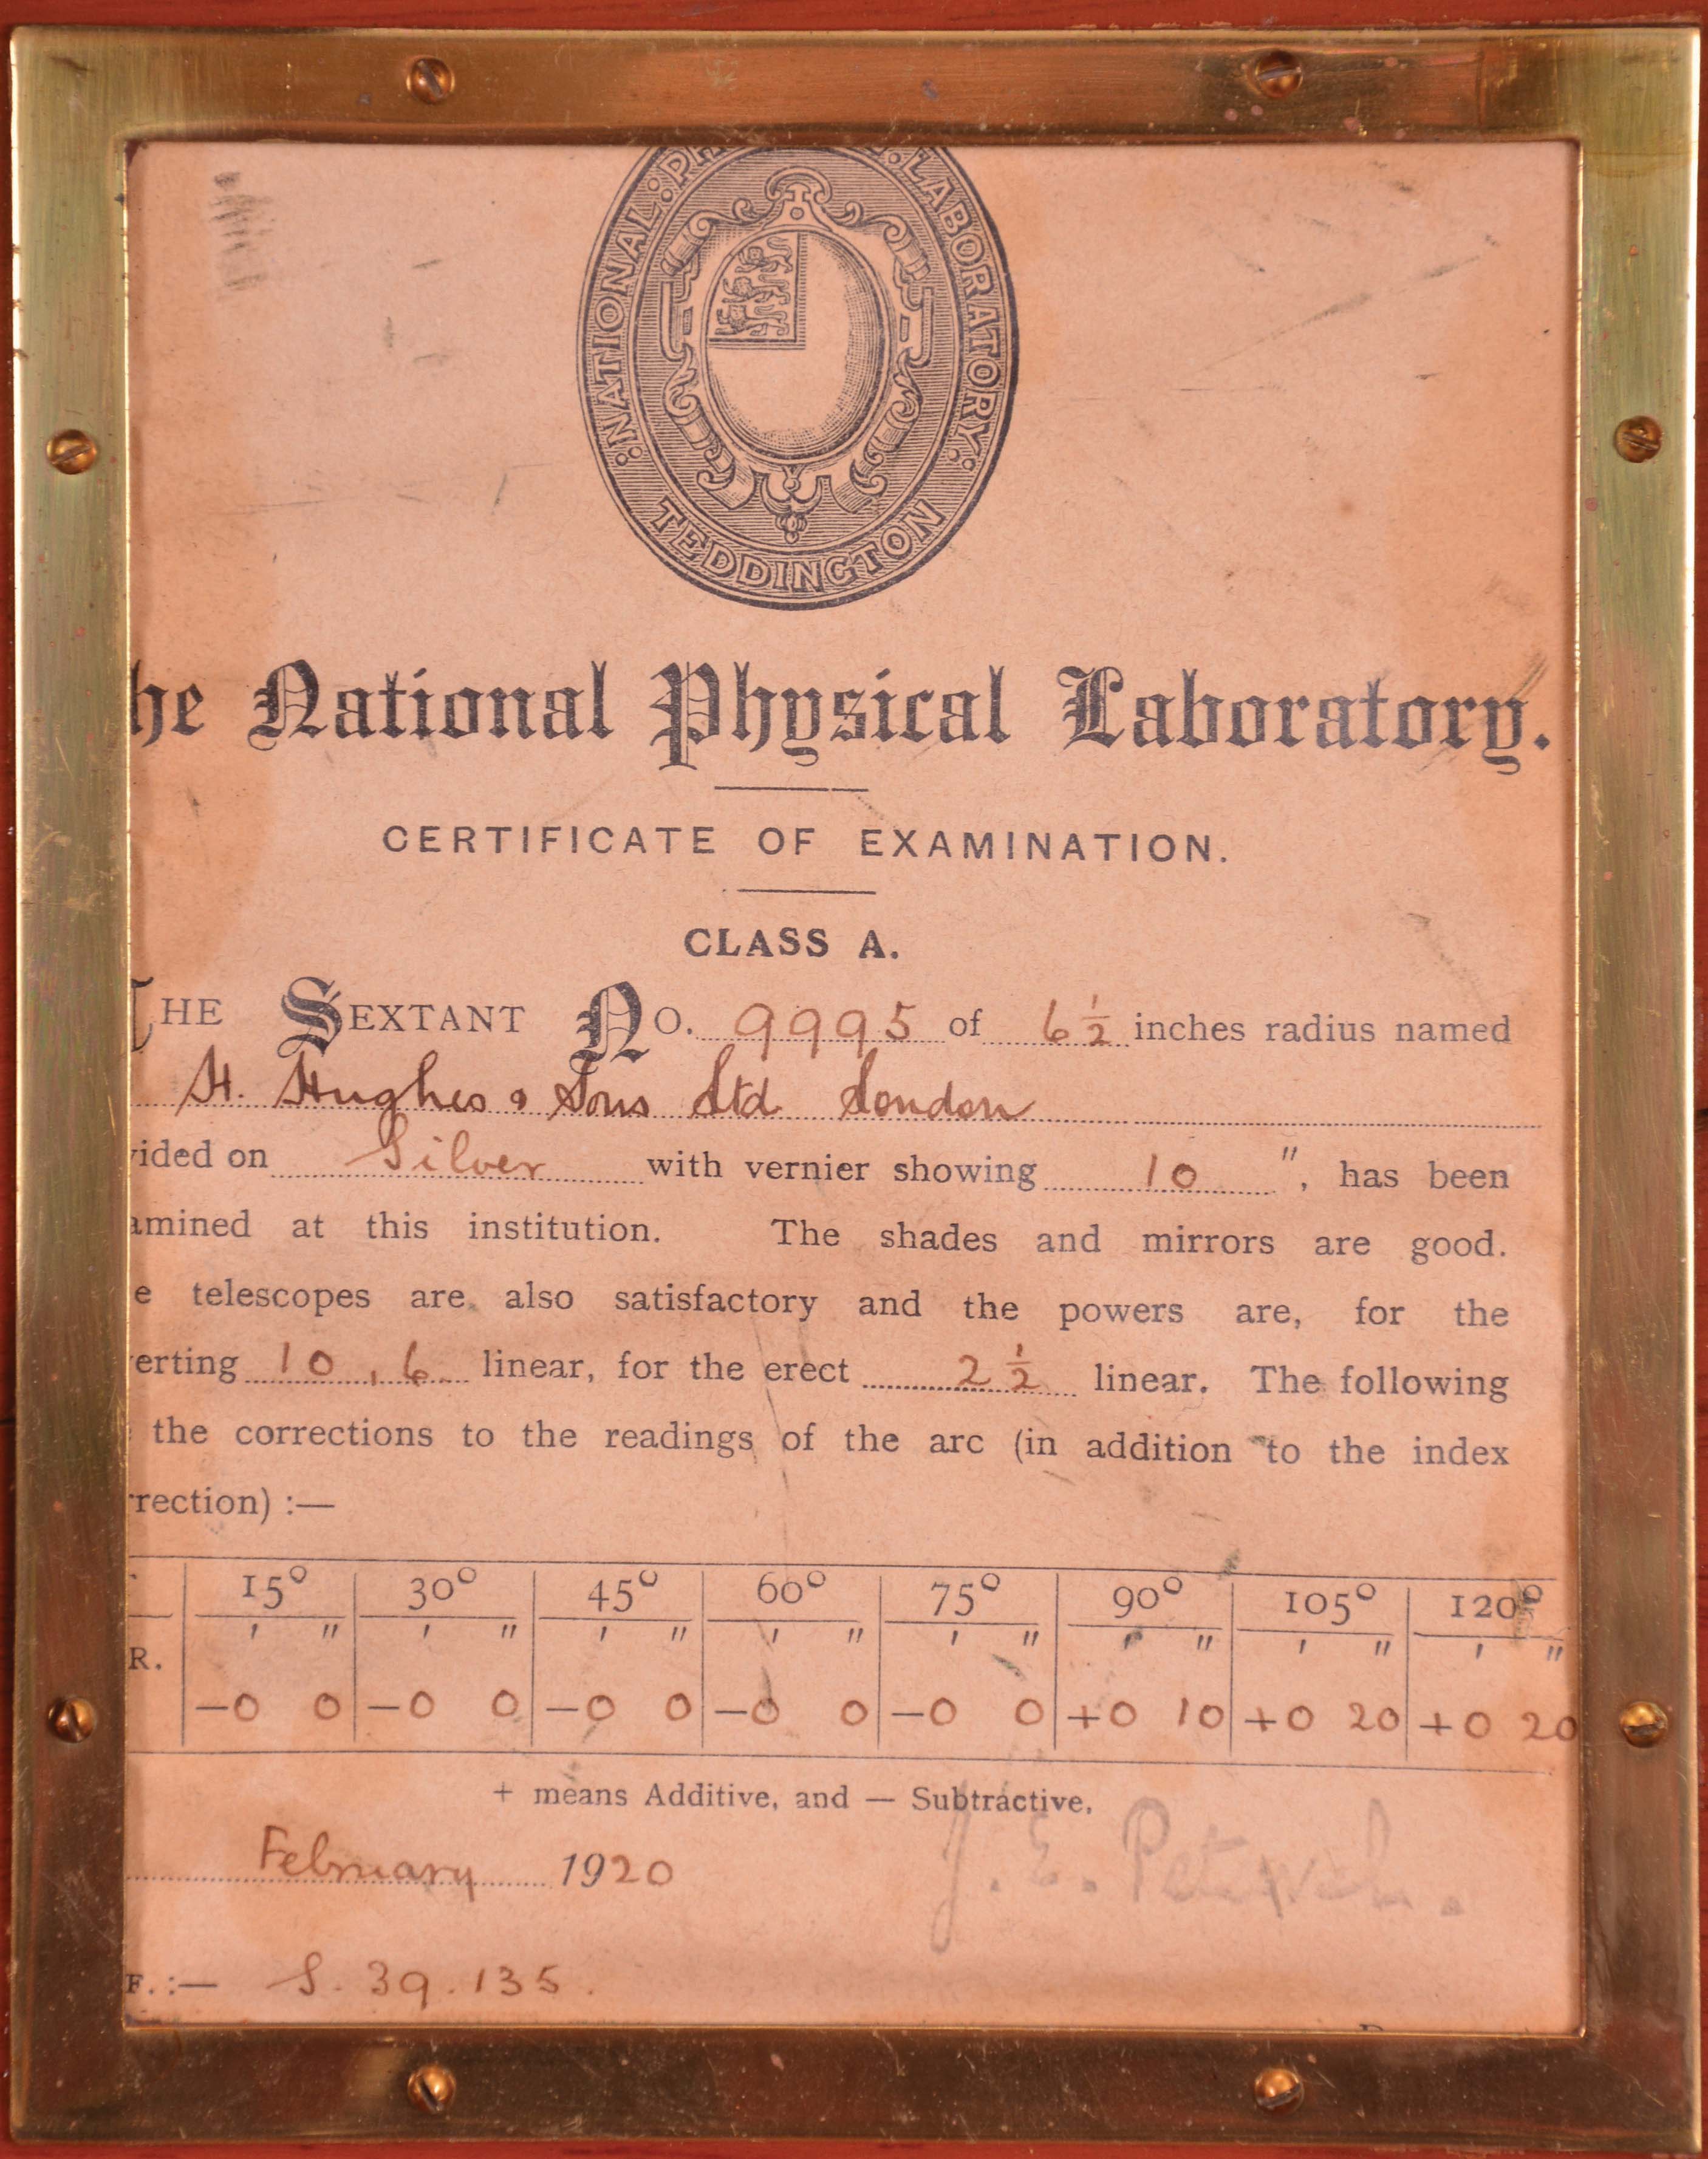 :NATIONAL:PH
:LABORATORY:
TEDDINGTON
he National Physical Laboratory.
CERTIFICATE OF EXAMINATION.
CLASS A.
THE SEXTANT NO. 9995 of 6 1/2 inches radius named
H. Hughes & Sons Ltd London
vided on Silver with vernier showing 10 ", has been
amined at this institution. The shades and mirrors are good.
e telescopes are also satisfactory and the powers are, for the
verting 10, 6 linear, for the erect 2 1/2 linear. The following
the corrections to the readings of the arc (in addition to the index
rrection) :—
15° 30° 45° 60° 75° 90° 105° 120°
' " ' " ' " ' " ' " ' " ' " ' "
R.
—0 0 —0 0 —0 0 —0 0 —0 0 +0 10 +0 20 +0 20
+ means Additive, and — Subtractive.
February 1920
J. E. Petavel.
F. :— S. 39.135.